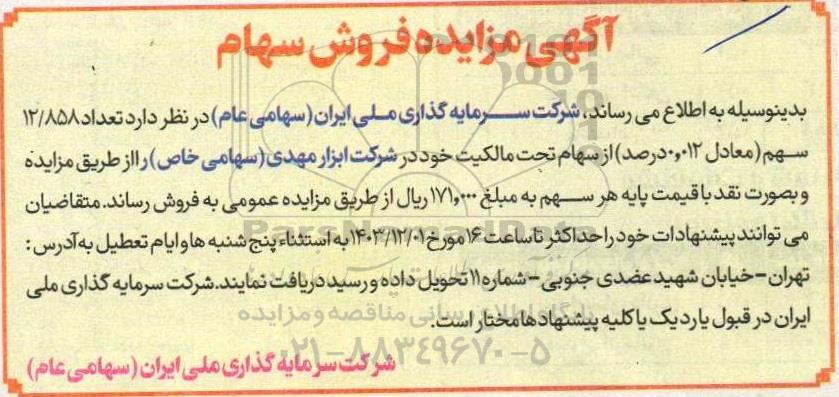 آگهی مزایده فروش سهام
بدینوسیله به اطلاع می رساند، شرکت سرمایه گذاری ملی ایران (سهامی عام) در نظر دارد تعداد ۱۲/۸۵۸
سهم (معادل ۰,۰۱۲درصد) از سهام تحت مالکیت خود در شرکت ابزار مهدی (سهامی خاص) را از طریق مزایده
و بصورت نقد با قیمت پایه هر سهم به مبلغ ۱۷۱,۰۰۰ ریال از طریق مزایده عمومی به فروش رساند. متقاضیان
می توانند پیشنهادات خود را حداکثر تا ساعت ۱۶ مورخ ۱۴۰۳/۱۲/۰۱ به استثناء پنج شنبه ها و ایام تعطیل به آدرس:
تهران - خیابان شهید عضدی جنوبی - شماره ۱۱ تحویل داده و رسید دریافت نمایند. شرکت سرمایه گذاری ملی
ایران در قبول یا رد یک یا کلیه پیشنهادها مختار است.
شرکت سرمایه گذاری ملی ایران (سهامی عام)
پایگاه اطلاع رسانی مناقصه و مزایده
۰۲۱-۸۸۳۴۹۶۷۰-۵